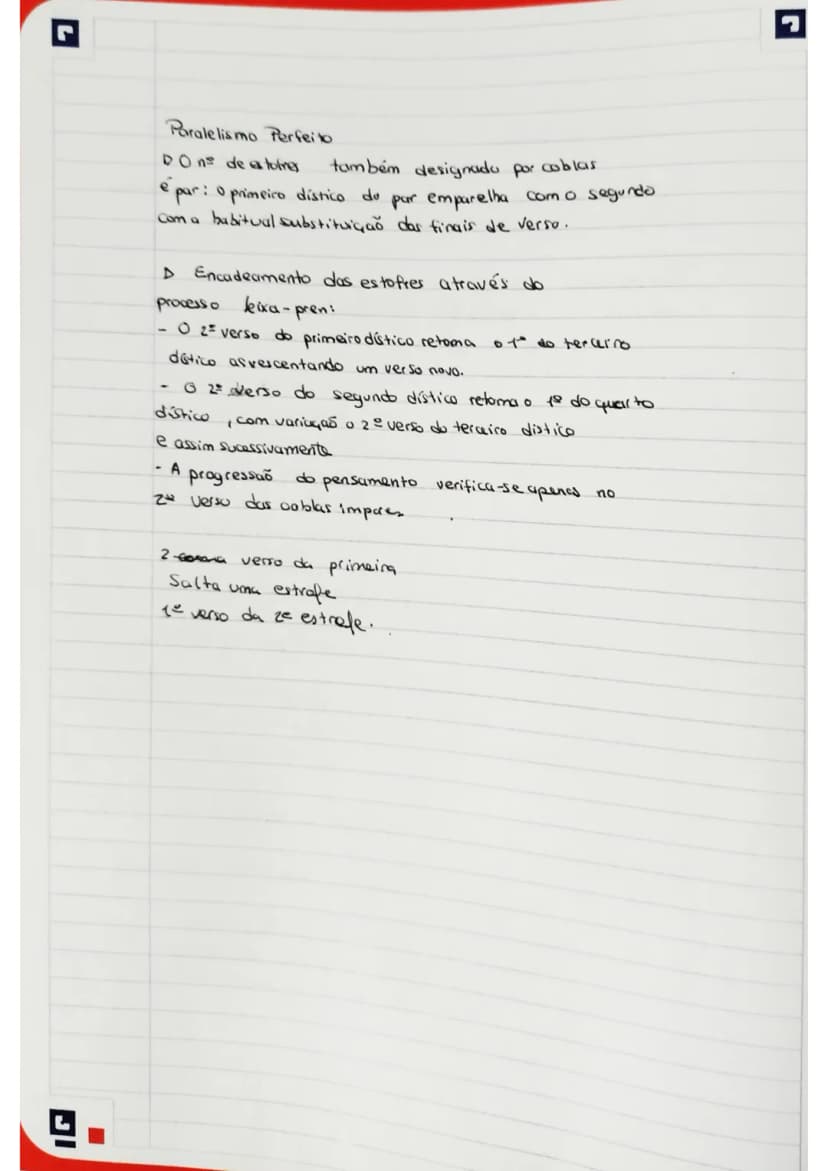 Paralelismo Perfeito
D O nº de estofres também designado por coblas
é par: O primeiro dístico do par emparelha com o segundo
com a habitual substituição das finais de verso.
D Encadeamento das estofres através do
processo leixa-pren:
- O 2º verso do primeiro dístico retoma o 1º do terceiro
dístico acrescentando um verso novo.
- O 2º verso do segundo dístico retoma o 1º do quarto
dístico, com variação o 2º verso do terceiro distico
e assim sucessivamente
- A progressão do pensamento verifica-se apenas no
2º verso das coblas impares
2 verso da primeira
Salta uma estrofe
1º verso da 2ª estrofe.